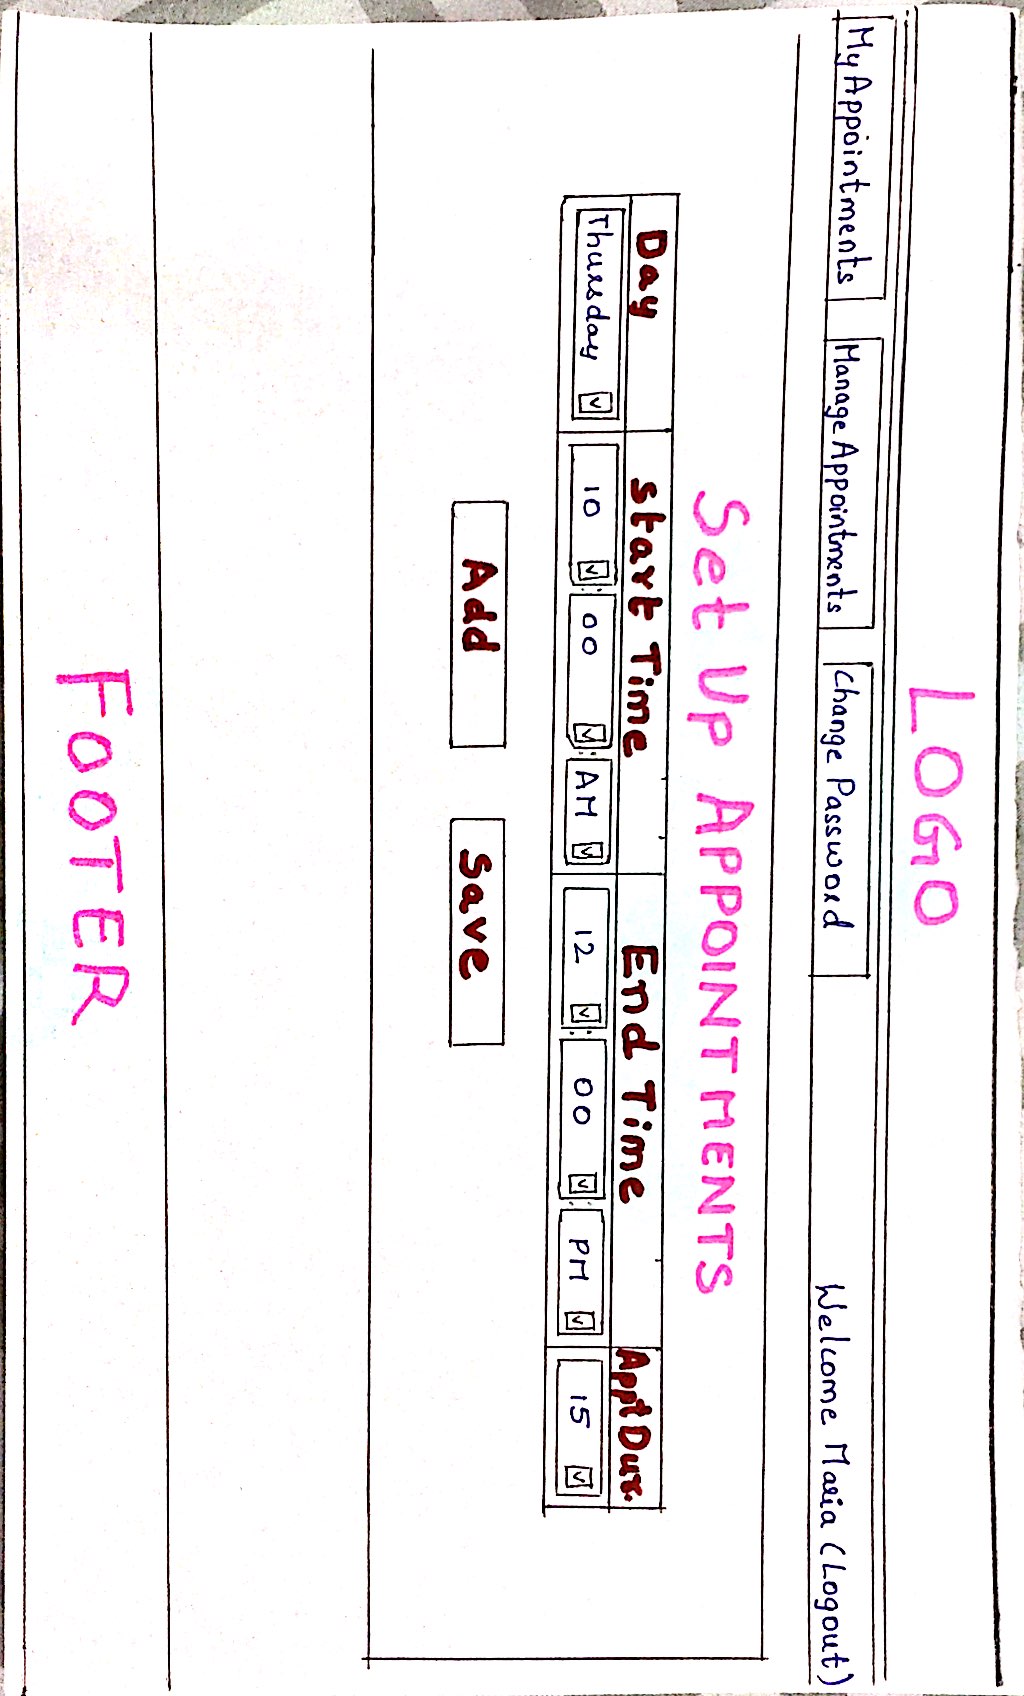 LOGO
My Appointments Manage Appointments Change Password Welcome Maria (Logout)
Set Up APPOINTMENTS
Day Start Time End Time Appt Dur.
Thursday 10 : 00 : AM 12 : 00 : PM 15
Add Save
FOOTER